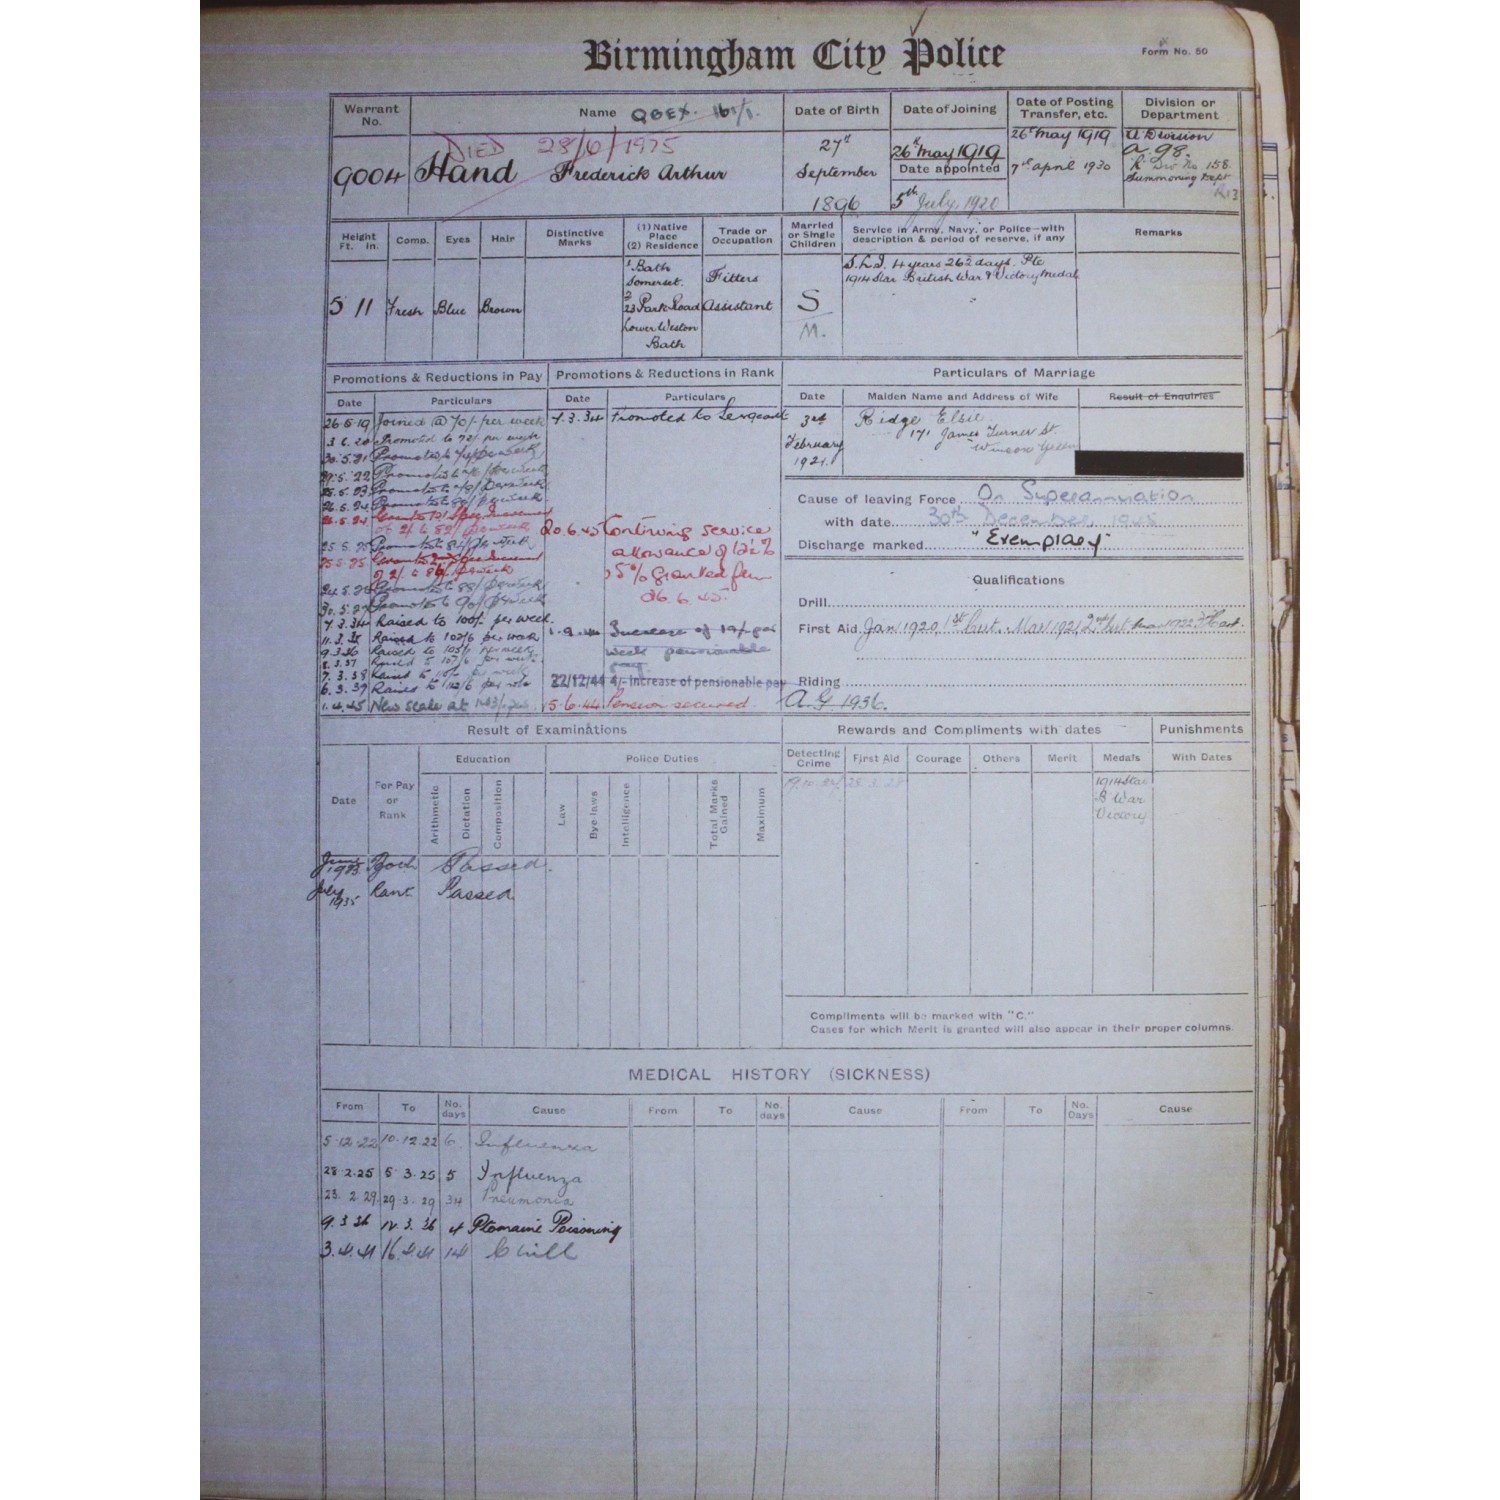 Birmingham City Police
Form No. 50
Warrant No.
Name
Date of Birth
Date of Joining
Date of Posting Transfer, etc.
Division or Department
DIED 28/6/1975
9004
Hand Frederick Arthur
27th September 1896
26th May 1919
Date appointed
5th July, 1920
26th May 1919
7th April 1930
A Division
A. 98.
R Div No 158
Summoning Dept
R13
Height Ft. In.
Comp.
Eyes
Hair
Distinctive Marks
(1) Native Place
(2) Residence
Trade or Occupation
Married or Single Children
Service in Army, Navy, or Police—with description & period of reserve, if any
Remarks
5 11
Fresh
Blue
Brown
1 Bath
Somerset.
2
23 Park Road
Lower Weston
Bath
Fitters
Assistant
S
M.
S.L.I. 4 years 262 days. Pte
1914 Star British War & Victory Medal
Promotions & Reductions in Pay
Promotions & Reductions in Rank
Particulars of Marriage
Date
Particulars
Date
Particulars
Date
Maiden Name and Address of Wife
Result of Enquiries
26.5.19 Joined @ 70/- per week
3.6.20 Promoted to 72/- per week
30.5.21 Promoted to
Promoted to
25.5.23 Promoted to
26.5.24 Promoted to
26.5.24
of 2/- to 82/- per week
25.5.25 Promoted to
25.5.25
of 2/- to 86/- per week
Promoted to 88/- per week
Promoted to 90/- per week
7.3.34 Raised to 100/- per week.
11.3.35 Raised to 102/6 per week
9.3.36 Raised to 105/- per week
8.3.37 Raised to 107/6 per week
7.3.38 Raised to
6.3.39 Raised to 112/6 per week
1.4.45 New Scale at
7.3.34 Promoted to Sergeant
20.6.45 Continuing service
allowance of 12½%
5% granted from
26.6.45.
1.9.44 Increase of
week pensionable
pay.
22/12/44 4/- Increase of pensionable pay
15.6.44 Pension secured.
3rd
February
1921.
Ridge Elsie
171 James Turner St
Winson Green
Cause of leaving Force On Superannuation
with date 30th December 1945
Discharge marked "Exemplary"
Qualifications
Drill
First Aid Jan 1920, 1st Cert. Mar 1921, 2nd Cert
Riding
A.G. 1936.
Result of Examinations
Rewards and Compliments with dates
Punishments
Date
For Pay or Rank
Education
Police Duties
Arithmetic
Dictation
Composition
Law
Bye-laws
Intelligence
Total Marks Gained
Maximum
Detecting Crime
First Aid
Courage
Others
Merit
Medals
With Dates
1914 Star
B War
Victory
Passed
July 1935 Rank Passed
Compliments will be marked with "C."
Cases for which Merit is granted will also appear in their proper columns.
MEDICAL HISTORY (SICKNESS)
From
To
No. days
Cause
From
To
No. days
Cause
From
To
No. Days
Cause
5.12.22 10.12.22 6 Influenza
28.2.25 5.3.25 5 Influenza
23.2.29 29.3.29 34 Pneumonia
9.3.36 12.3.36 4 Ptomaine Poisoning
3.4.41 16.4.41 14 Chill